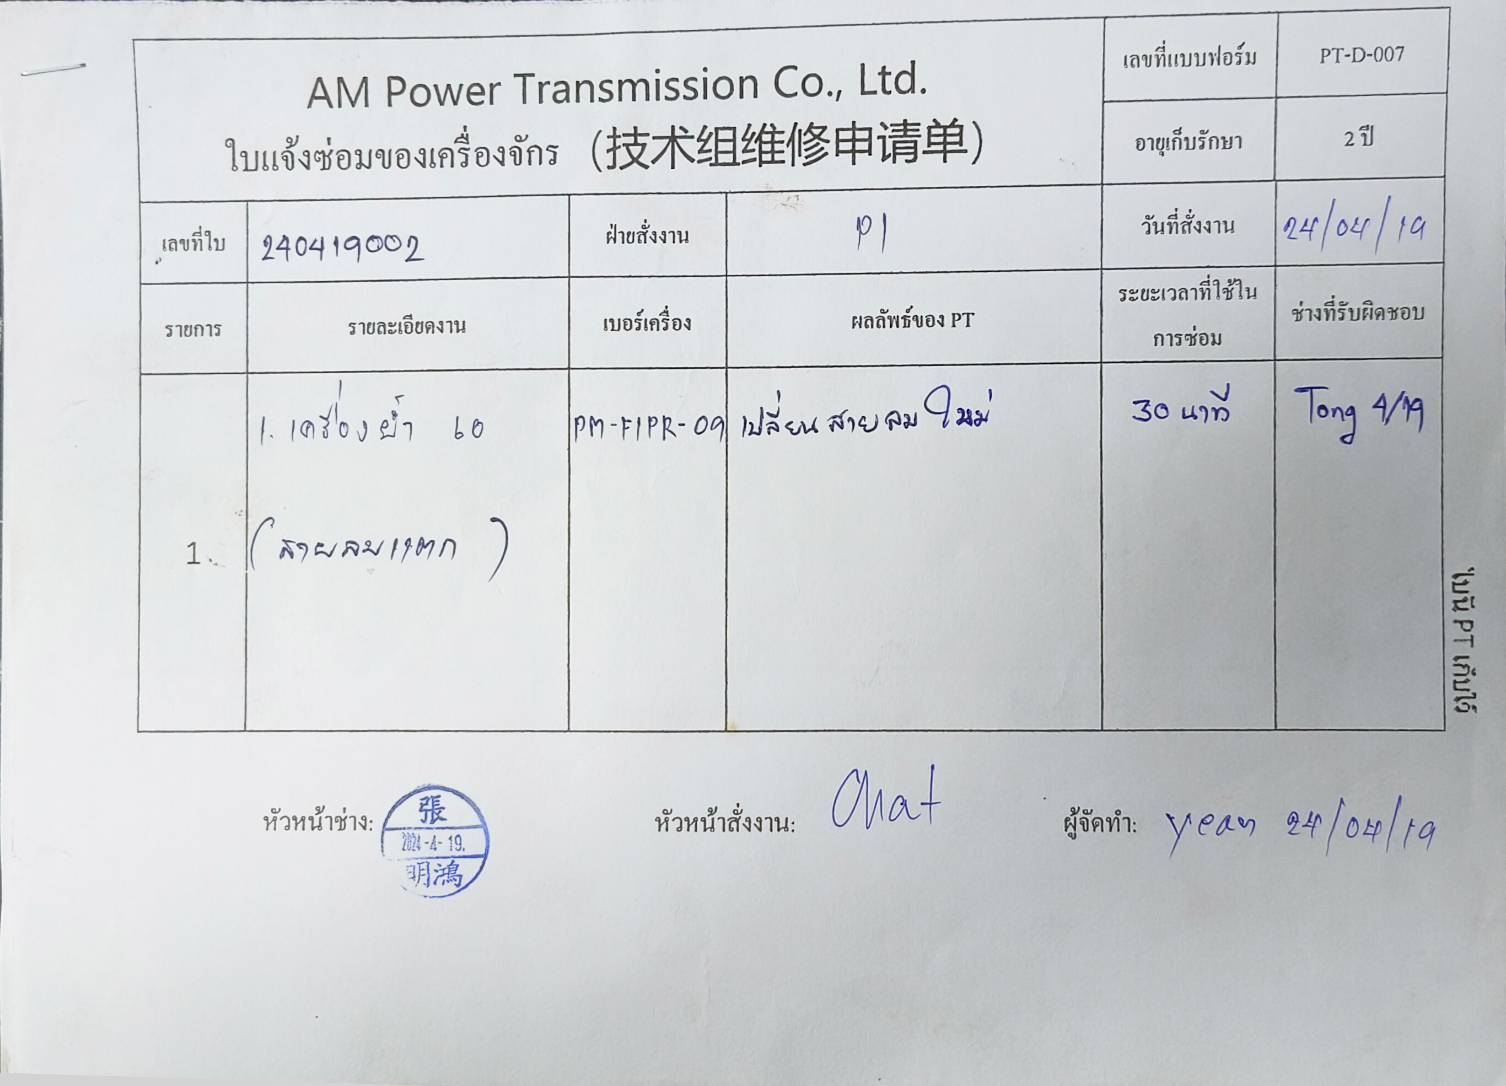 AM Power Transmission Co., Ltd.
ใบแจ้งซ่อมของเครื่องจักร (技术组维修申请单)
เลขที่แบบฟอร์ม PT-D-007
อายุเก็บรักษา 2 ปี
เลขที่ใบ 240419002 ฝ่ายสั่งงาน P1 วันที่สั่งงาน 24/04/19
รายการ รายละเอียดงาน เบอร์เครื่อง ผลลัพธ์ของ PT ระยะเวลาที่ใช้ใน ช่างที่รับผิดชอบ
การซ่อม
1. เครื่องย้ำ 60 PM-F1PR-09 เปลี่ยนสายลมใหม่ 30 นาที Tong 4/19
1. (สายลมแตก)
ใบนี้ PT เก็บไว้
หัวหน้าช่าง: 張 2024-4-19. 明鴻
หัวหน้าสั่งงาน: Chat
ผู้จัดทำ: yean 24/04/19